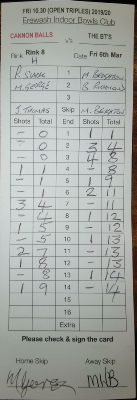 FRI 10.30 (OPEN TRIPLES) 2019/20
Erewash Indoor Bowls Club
CANNON BALLS v's THE BT'S
Rink Rink 8 Date Fri 6th Mar
H
1
M. GEORGE 2
3
J. THOMAS Skip M. BRAXTON
Shots Total End Shots Total
- 0 1 1 1
- 0 2 3 4
- 0 3 4 8
1 1 4 - 8
- 1 5 1 9
- 1 6 2 11
3 4 7 - 11
- 4 8 1 12
1 5 9 - 12
- 5 10 1 13
2 7 11 - 13
1 8 12 - 13
- 8 13 1 14
1 9 14 - 14
15
16
Extra
Please check & sign the card
Home Skip Away Skip
MWB